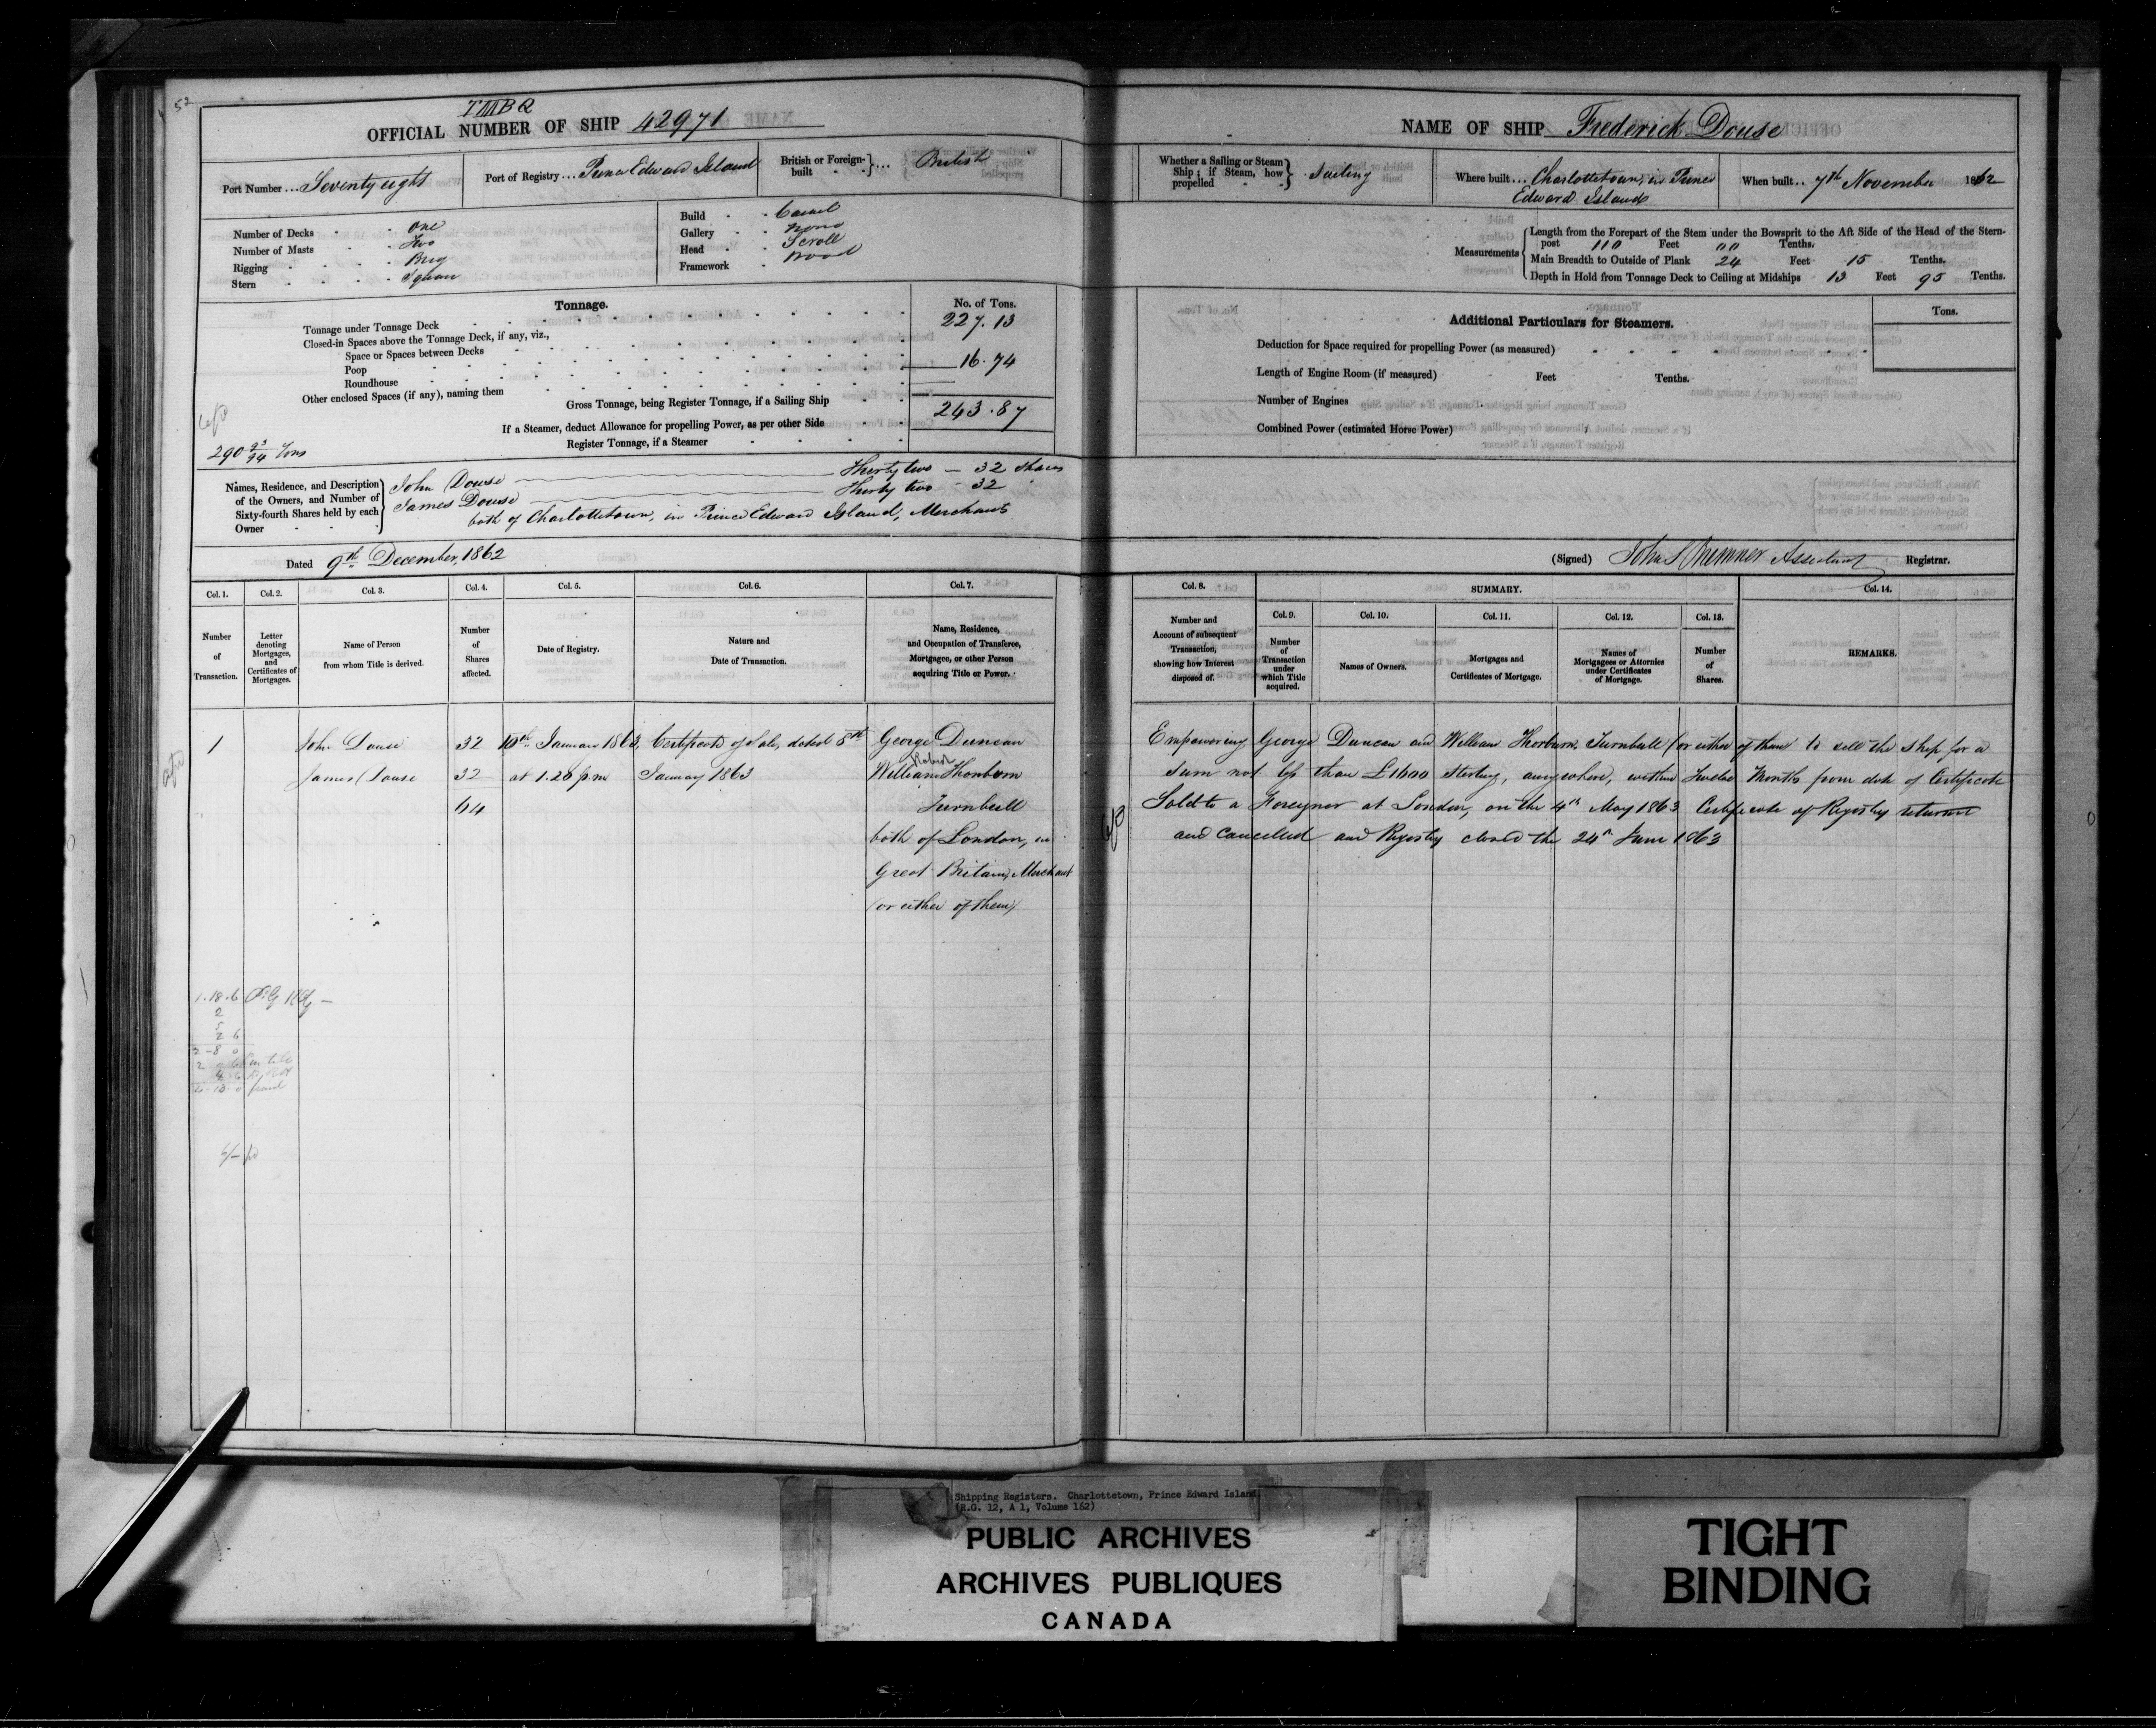 52
TMBQ
OFFICIAL NUMBER OF SHIP 42971
Port Number ... Seventy eight
Port of Registry ... Prince Edward Island
British or Foreign-built } ... British
Number of Decks One
Number of Masts Two
Rigging Brig
Stern Square
Build Carvel
Gallery None
Head Scroll
Framework Wood
Tonnage.
No. of Tons.
Tonnage under Tonnage Deck 227.13
Closed-in Spaces above the Tonnage Deck, if any, viz.,
Space or Spaces between Decks
Poop 16.74
Roundhouse
Other enclosed Spaces (if any), naming them
Gross Tonnage, being Register Tonnage, if a Sailing Ship 243.87
If a Steamer, deduct Allowance for propelling Power, as per other Side
Register Tonnage, if a Steamer
290 93/94 Tons
Names, Residence, and Description of the Owners, and Number of Sixty-fourth Shares held by each Owner
John Douse Thirty two — 32 Shares
James Douse Thirty two - 32 "
both of Charlottetown, in Prince Edward Island, Merchants
Dated 9th December, 1862
Col. 1. Col. 2. Col. 3. Col. 4. Col. 5. Col. 6. Col. 7.
Number of Transaction.
Letter denoting Mortgages, and Certificates of Mortgages.
Name of Person from whom Title is derived.
Number of Shares affected.
Date of Registry.
Nature and Date of Transaction.
Name, Residence, and Occupation of Transferee, Mortgagee, or other Person acquiring Title or Power.
1 John Douse 32 10th January 1863, Certificate of Sale, dated 8th George Duncan
James Douse 32 at 1.20 p.m January 1863 William Robert Thorburn
64 Turnbull
both of London, in
Great Britain, Merchant
(or either of them)
1.18.6
2
5
2 6
2-8 0
NAME OF SHIP Frederick Douse
Whether a Sailing or Steam Ship; if Steam, how propelled } Sailing
Where built ... Charlottetown, in Prince
Edward Island
When built .. 7th November 1862
Measurements
Length from the Forepart of the Stem under the Bowsprit to the Aft Side of the Head of the Stern-
post 110 Feet 00 Tenths.
Main Breadth to Outside of Plank 24 Feet 15 Tenths.
Depth in Hold from Tonnage Deck to Ceiling at Midships 13 Feet 95 Tenths.
Additional Particulars for Steamers.
Tons.
Deduction for Space required for propelling Power (as measured)
Length of Engine Room (if measured) Feet Tenths.
Number of Engines
Combined Power (estimated Horse Power)
(Signed) John S Bremner Assistant Registrar.
Col. 8. SUMMARY. Col. 14.
Col. 9. Col. 10. Col. 11. Col. 12. Col. 13.
Number and Account of subsequent Transaction, showing how Interest disposed of.
Number of Transaction under which Title acquired.
Names of Owners.
Mortgages and Certificates of Mortgage.
Names of Mortgagees or Attornies under Certificates of Mortgage.
Number of Shares.
REMARKS.
Empowering George Duncan and William Thorburn Turnbull (or either of them to sell the Ship for a
Sum not less than £1600 Sterling, anywhere, within Twelve Months from date of Certificate
Sold to a Foreigner at London, on the 4th May 1863 Certificate of Registry returned
and Cancelled and Registry closed the 24th June 1863
Shipping Registers. Charlottetown, Prince Edward Island
(R.G. 12, A 1, Volume 162)
PUBLIC ARCHIVES
ARCHIVES PUBLIQUES
CANADA
TIGHT
BINDING